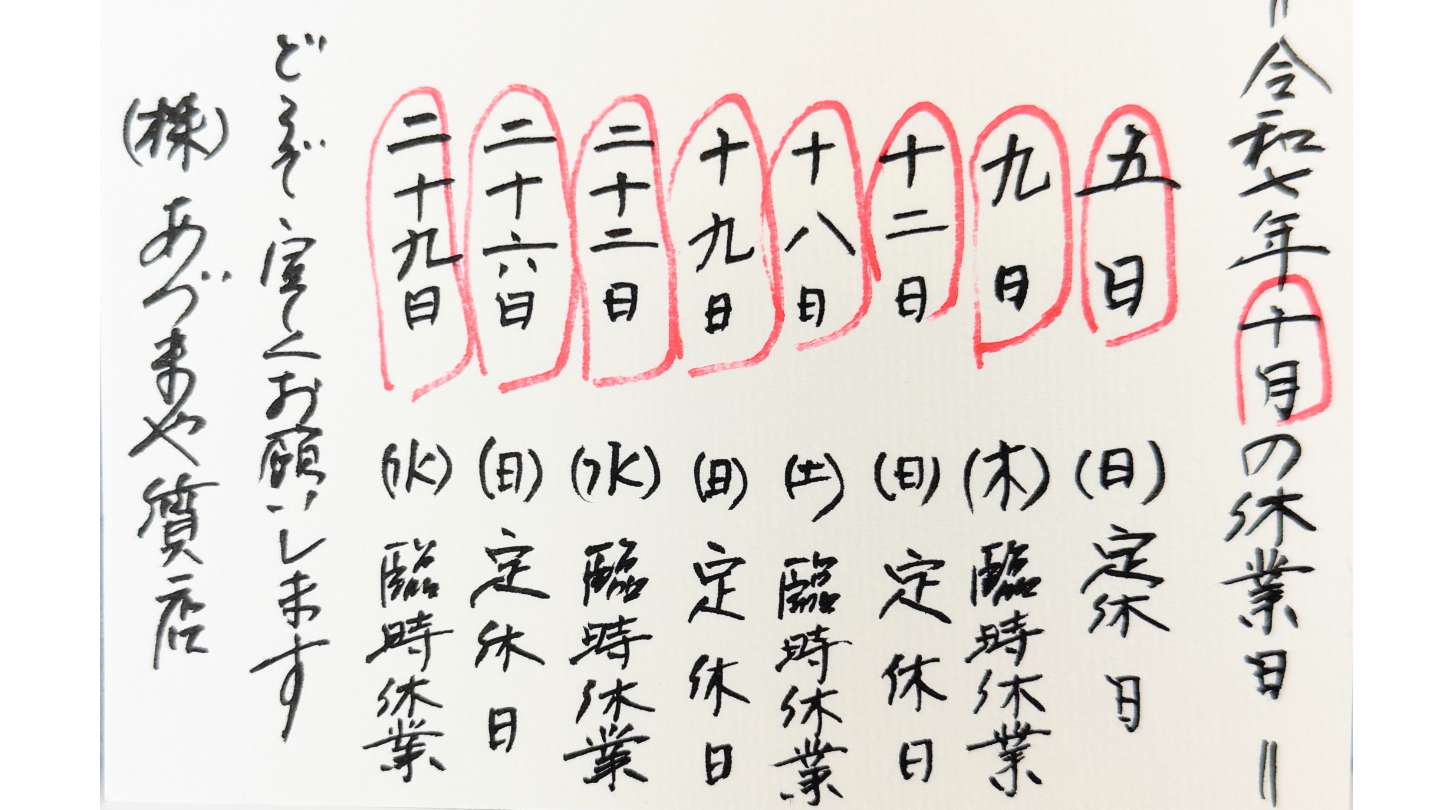 ＝令和七年十月の休業日＝
五日（日）定休日
九日（木）臨時休業
十二日（日）定休日
十八日（土）臨時休業
十九日（日）定休日
二十二日（水）臨時休業
二十六日（日）定休日
二十九日（水）臨時休業
どうぞ宜しくお願いします
（株）あづまや質店